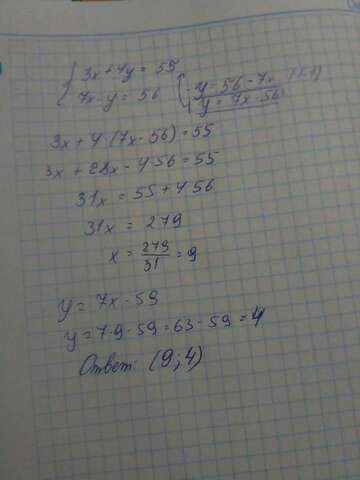 { 3x + 4y = 55
{ 7x - y = 56 { -y = 56 - 7x | (-1)
y = 7x - 56
3x + 4(7x - 56) = 55
3x + 28x - 4·56 = 55
31x = 55 + 4·56
31x = 279
x = 279/31 = 9
y = 7x - 59
y = 7·9 - 59 = 63 - 59 = 4
Ответ: (9; 4)